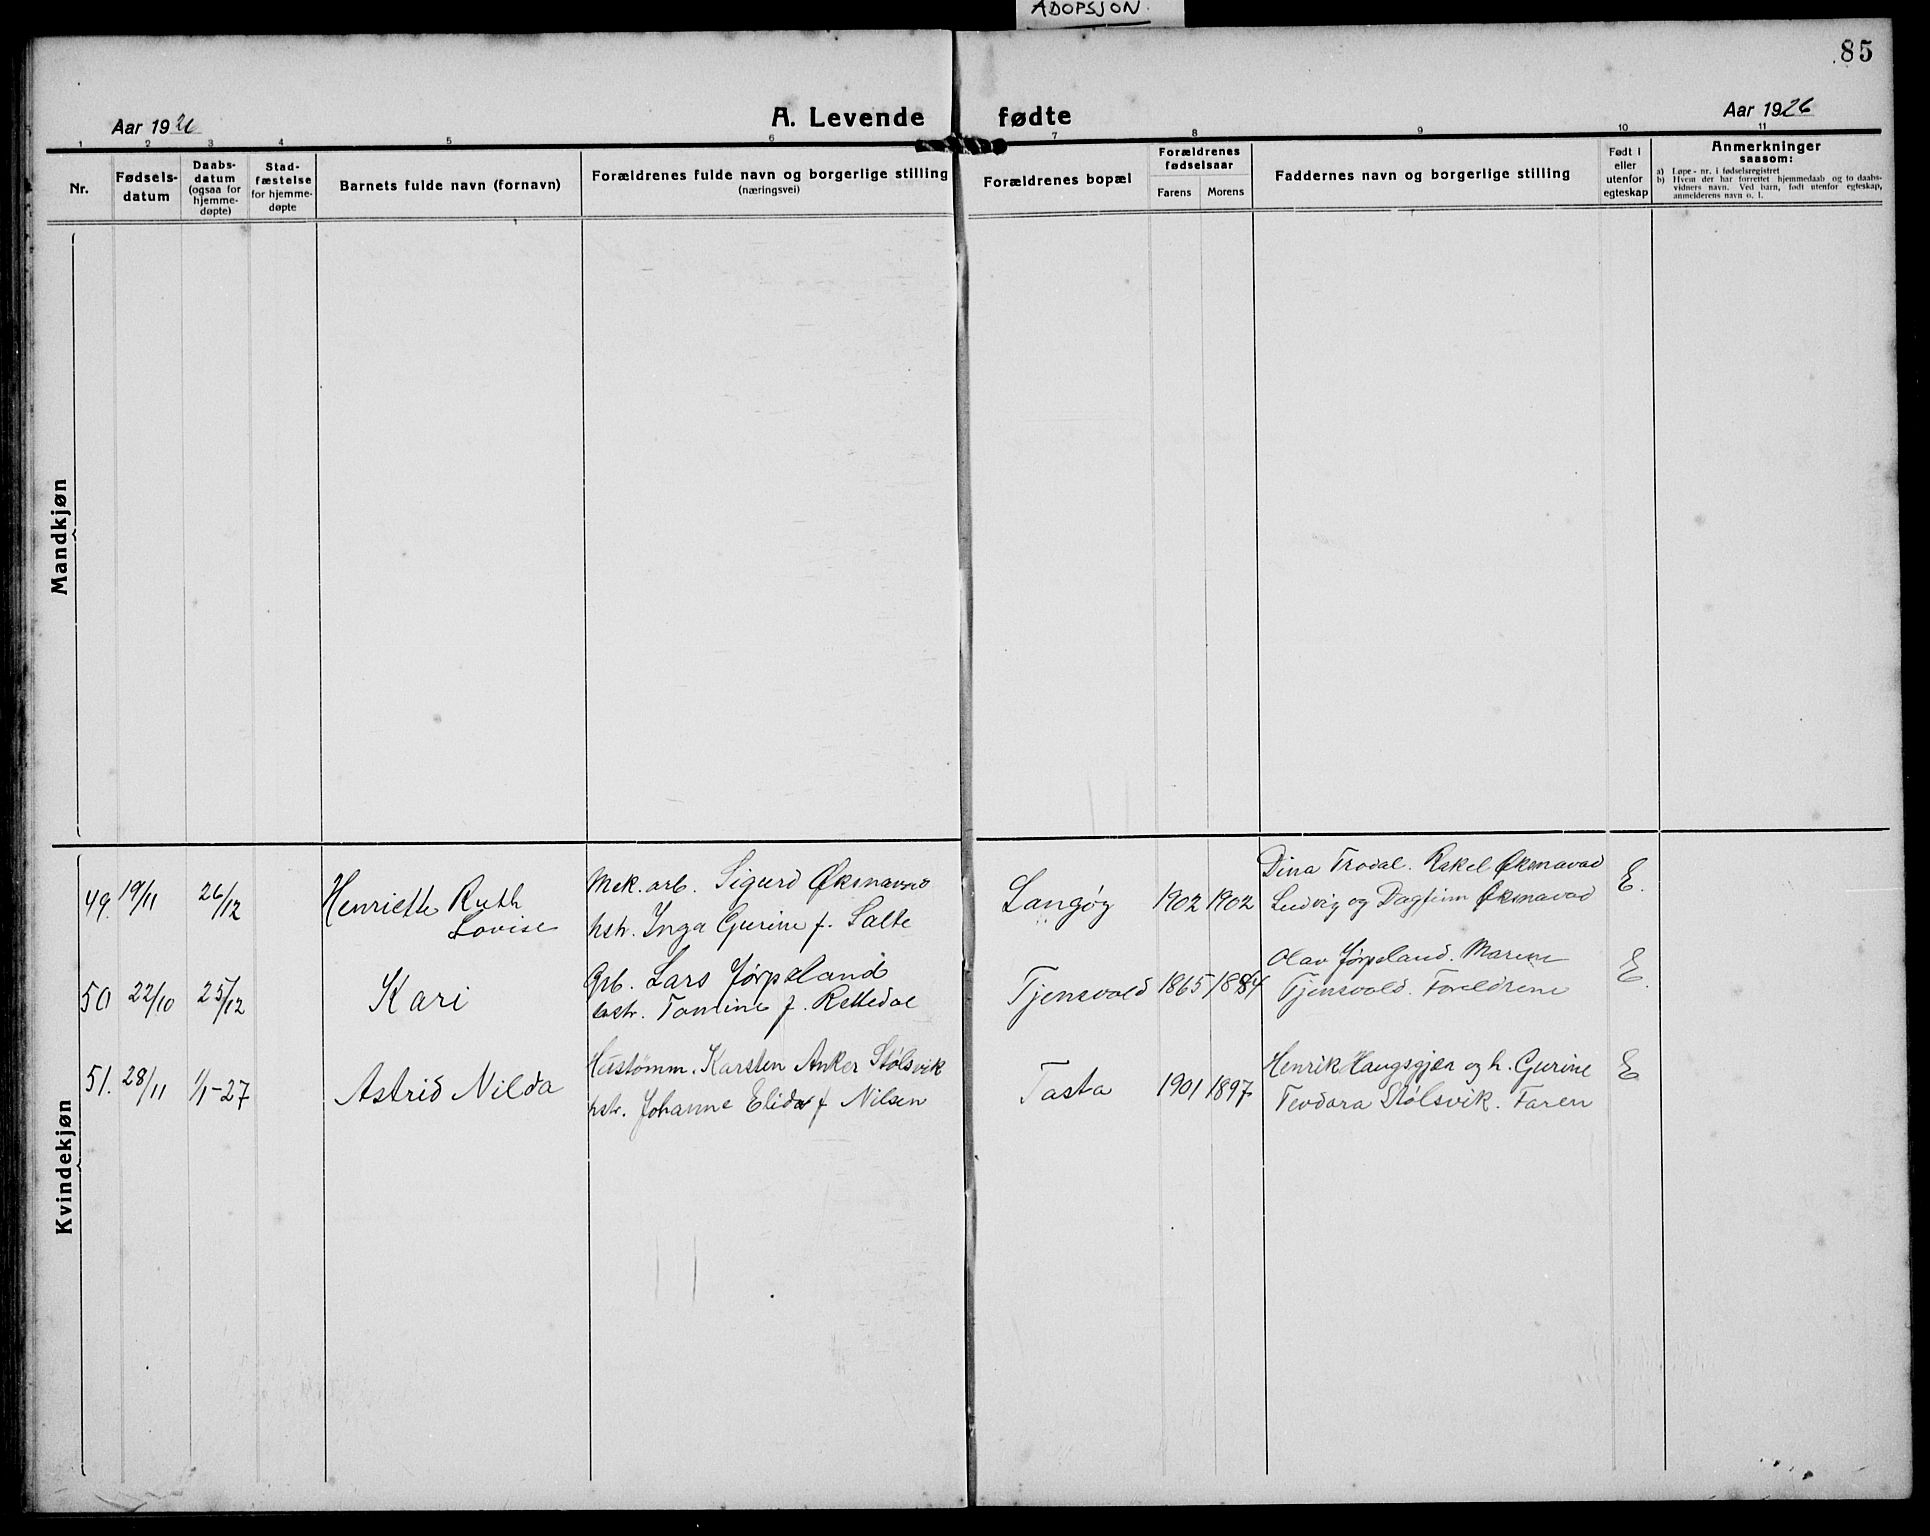 ADOPSJON.
85
Aar 1926
A. Levende fødte
Aar 1926
1 2 3 4 5 6 7 8 9 10 11
Nr.
Fødsels-
datum
Daabs-
datum
(ogsaa for
hjemme-
døpte)
Stad-
fæstelse
for hjemme-
døpte
Barnets fulde navn (fornavn)
Forældrenes fulde navn og borgerlige stilling
(næringsvei)
Forældrenes bopæl
Forældrenes
fødselsaar
Farens Morens
Faddernes navn og borgerlige stilling
Født i
eller
utenfor
egteskap
Anmerkninger
saasom:
a) Løpe-nr. i fødselsregistret
b) Hvem der har forrettet hjemmedaab og to daabs-
vidners navn. Ved barn, født utenfor egteskap,
anmelderens navn o. l.
Mandkjøn
Kvindekjøn
49. 19/11 26/12 Henriette Ruth
Lovise
Mek. arb. Sigurd Øksnavad
hstr. Inga Gurine f. Salte
Langøy 1902 1902
Dina Trodal. Rakel Øksnavad
Ludvig og Dagfinn Øksnavad
E.
50 22/10 25/12 Kari
Grb. Lars Jørpeland
hstr. Tomine f. Rettedal
Tjensvold 1865 1884
Olav Jørpeland. Maren
Tjensvold. Foreldrene
E.
51. 28/11 1/1-27 Astrid Nilda
Hustømm. Karsten Anker Stølsvik
hstr. Johanne Elida f Nilsen
Tasta 1901 1897
Henrik Haugsgjer og h. Gurine
Teodora Stølsvik. Faren
E